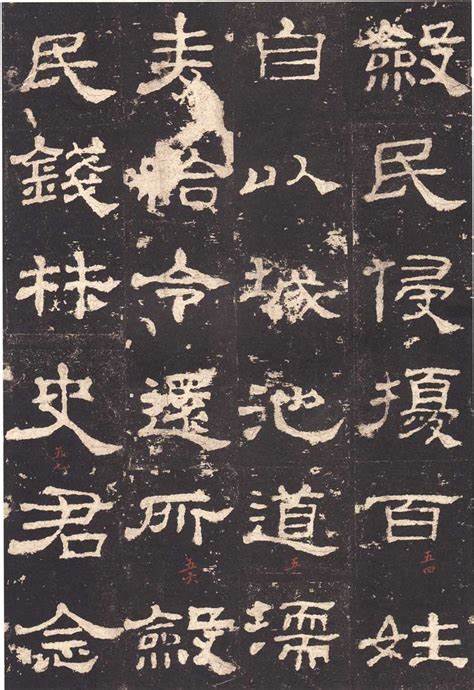 斂民侵擾百姓
五四
自以城池道濡
五
麥給令還所斂
五六
民錢材史君念
五七